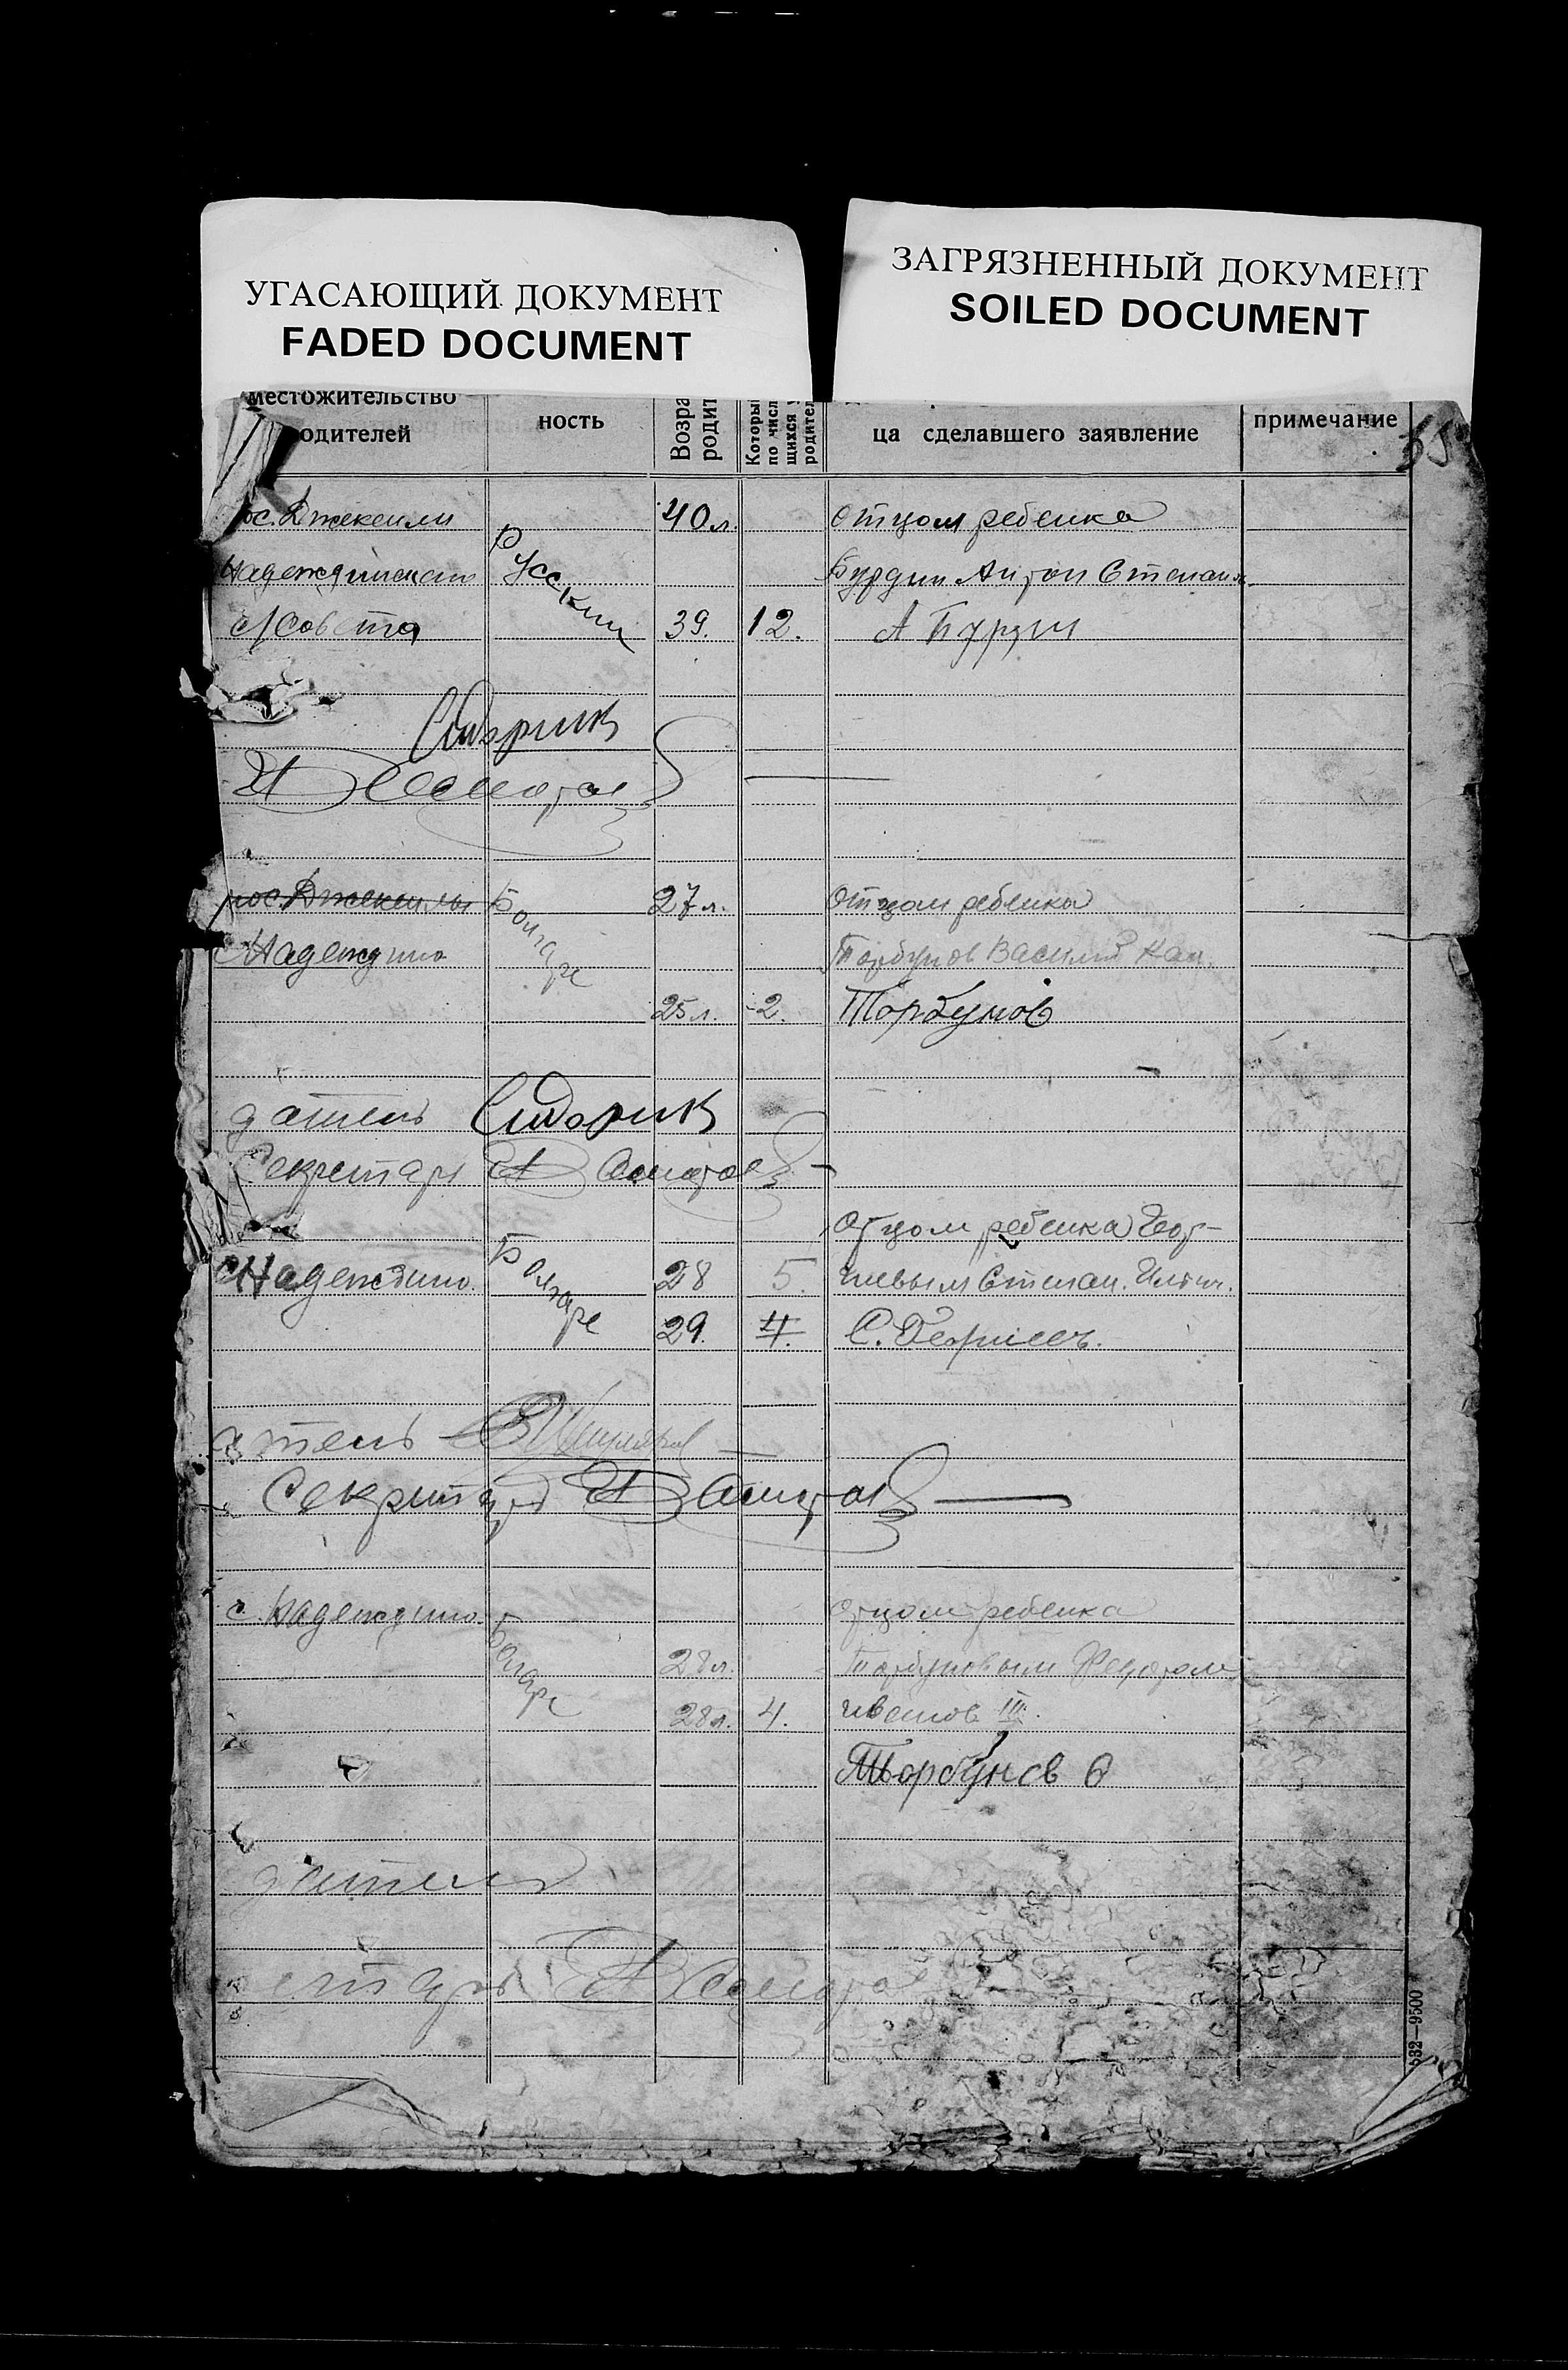 УГАСАЮЩИЙ ДОКУМЕНТ
FADED DOCUMENT
ЗАГРЯЗНЕННЫЙ ДОКУМЕНТ
SOILED DOCUMENT
местожительство
одителей
ность
Возра
родит
Который
по числ
щихся у
родител
ца сделавшего заявление
примечание
ос. Джекеили 40 л. отцом ребенка
Русские
Бурдин Антон Степан
с/совета 39. 12. А Бурдин
Сидорик
пос. Джекеилы Болгаре 27 л. отцом ребенка
с Надеждино Торбунов Василий
25 л. 2. Торбунов
датель Сидорик
Секретарь
отцом ребенка Геор-
с Надеждино. Болгаре 28 5. гиевым Степан.
29. 4. С. Георгиев.
атель
Секретарь
с. Надеждино. Болгаре отцом ребенка
28 л. Торбуновым Федотом
28 л. 4. ивенов III.
Торбунов Ѳ
датель
етарь
632—9500